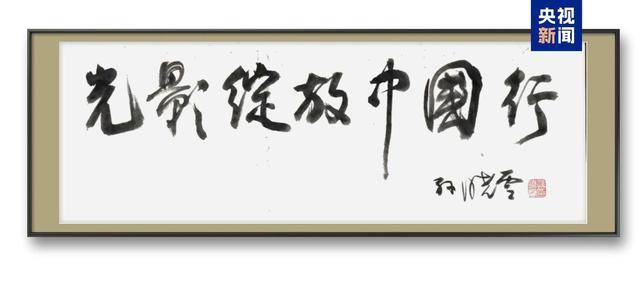 央视
新闻
光影绽放中国行
孙晓云